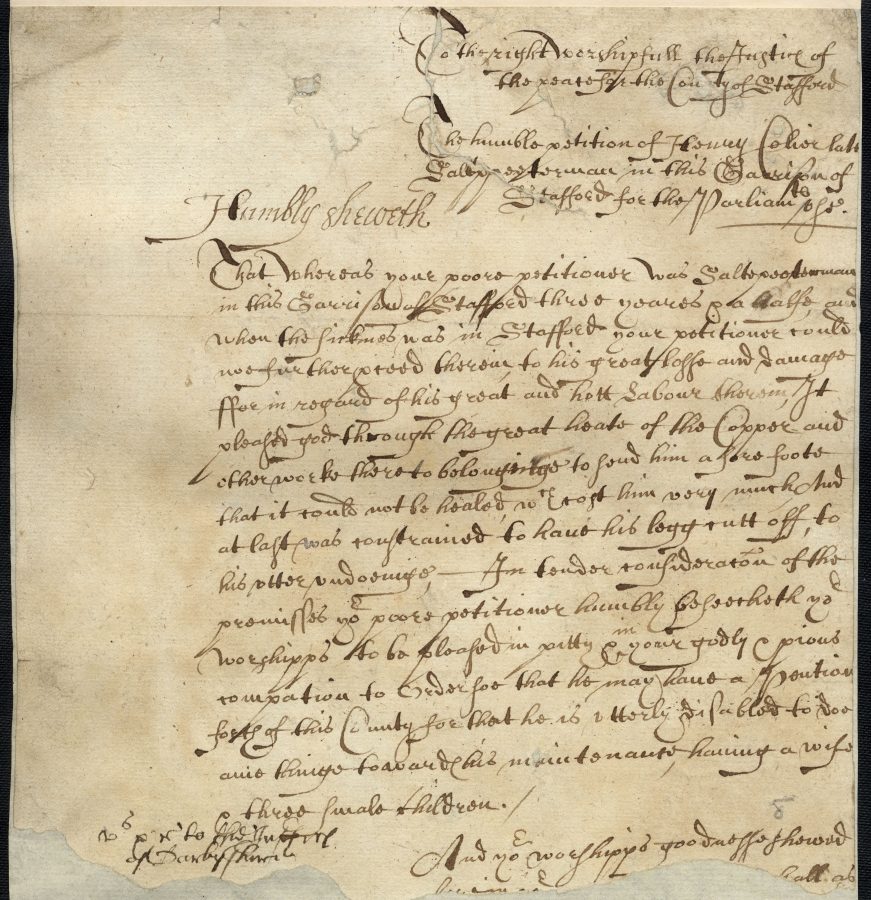 To the right worshipfull the Justices of
the peace for the County of Stafford
The humble petition of Henry Colier late
Saltpeeterman in this Garrison of
Stafford for the Parliamts
Humbly sheweth
That whereas your poore petitioner was Saltepeeterman
in this Garrison of Stafford three yeares & a halfe, and
when the sicknes was in Stafford your petitioner could
noe further pceed therein, to his great losse and damage
ffor in regard of his great and hott Labour therein, It
pleased god through the great heate of the Copper and
other worke there to belonginge to send him a sore foote
that it could not be healed, wch cost him very much And
at last was constrained to have his legg cutt off, to
his utter undoeinge, — In tender consideracon of the
premisses yor poore petitioner humbly beseecheth yor
worshipps to be pleased in pitty & in your godly & pious
compation to Order soe that he may have a Pention
forth of this County for that he is utterly disabled to doe
anie thinge towards his maintenance, having a wife
& three smale children./
to the Justices
of Darbyshire
And yor worshipps goodnesse shewed
shall as